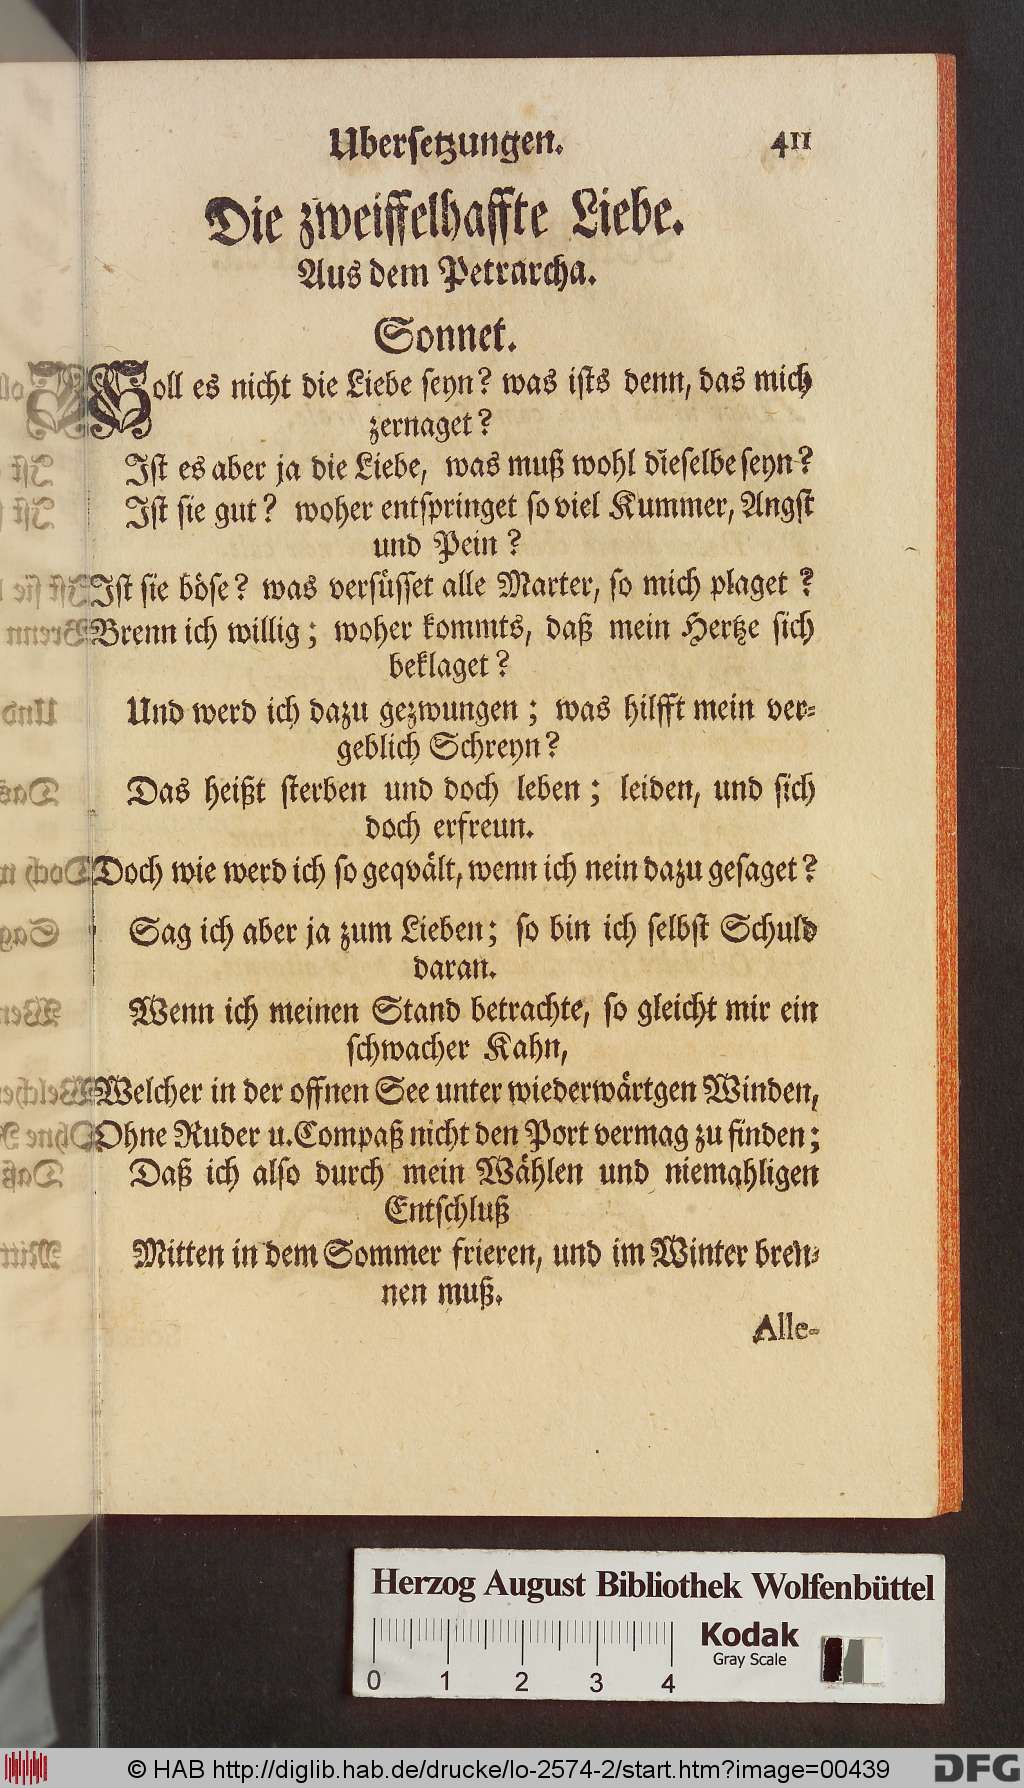 Ubersetzungen. 411
Die zweiffelhaffte Liebe.
Aus dem Petrarcha.
Sonnet.
Soll es nicht die Liebe seyn? was ists denn, das mich
zernaget?
Ist es aber ja die Liebe, was muß wohl dieselbe seyn?
Ist sie gut? woher entspringet so viel Kummer, Angst
und Pein?
Ist sie böse? was versüsset alle Marter, so mich plaget?
Brenn ich willig; woher kommts, daß mein Hertze sich
beklaget?
Und werd ich dazu gezwungen; was hilfft mein ver-
geblich Schreyn?
Das heißt sterben und doch leben; leiden, und sich
doch erfreun.
Doch wie werd ich so geqvält, wenn ich nein dazu gesaget?
Sag ich aber ja zum Lieben; so bin ich selbst Schuld
daran.
Wenn ich meinen Stand betrachte, so gleicht mir ein
schwacher Kahn,
Welcher in der offnen See unter wiederwärtgen Winden,
Ohne Ruder u. Compaß nicht den Port vermag zu finden;
Daß ich also durch mein Wählen und niemahligen
Entschluß
Mitten in dem Sommer frieren, und im Winter bren-
nen muß.
Alle-
Herzog August Bibliothek Wolfenbüttel
Kodak
Gray Scale
0 1 2 3 4
© HAB http://diglib.hab.de/drucke/lo-2574-2/start.htm?image=00439
DFG